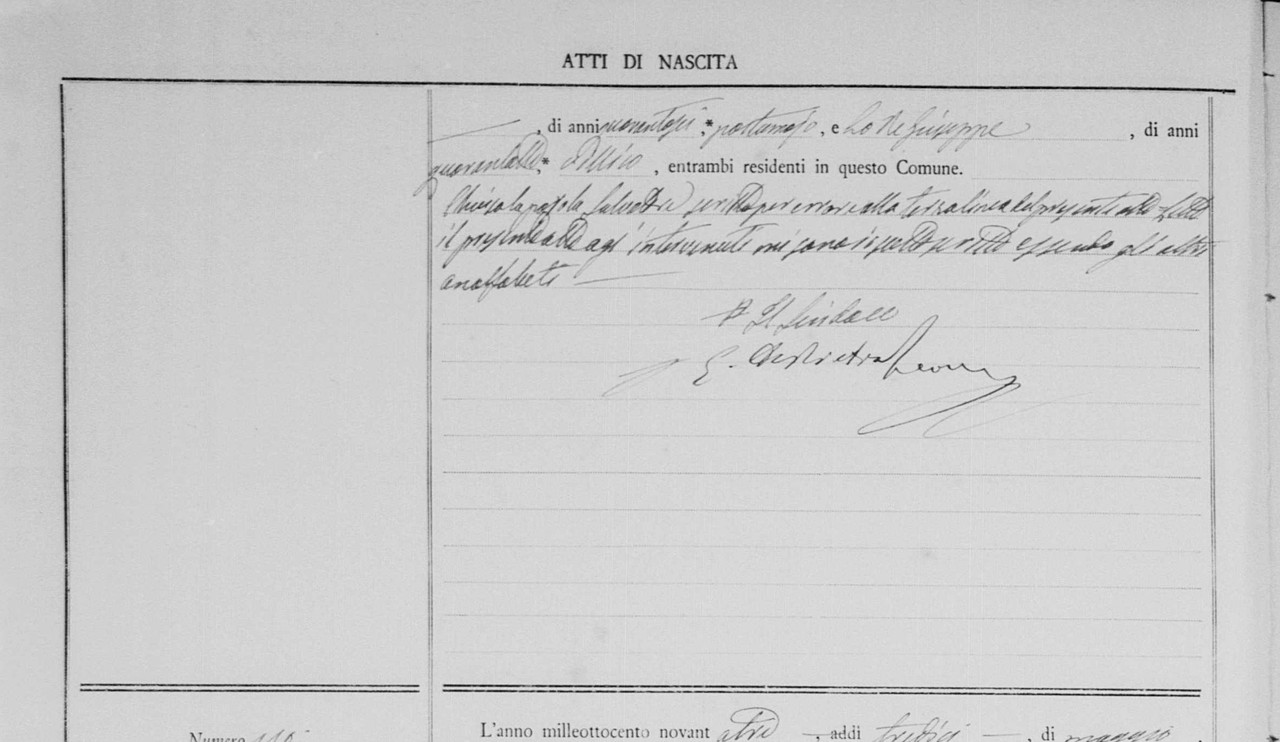 ATTI DI NASCITA
, di anni quarantasei, , e Lo Re Giuseppe , di anni
quarantatre, , entrambi residenti in questo Comune.
la parola Salvatore scritta per errore alla terza linea del presente atto Letto
il presente atto agl'intervenuti mi sono io sottoscritto essendo gli altri
analfabeti
Il Sindaco
E. Di Pietra
L'anno milleottocento novantatre, addì tredici, di maggio,
Numero 110